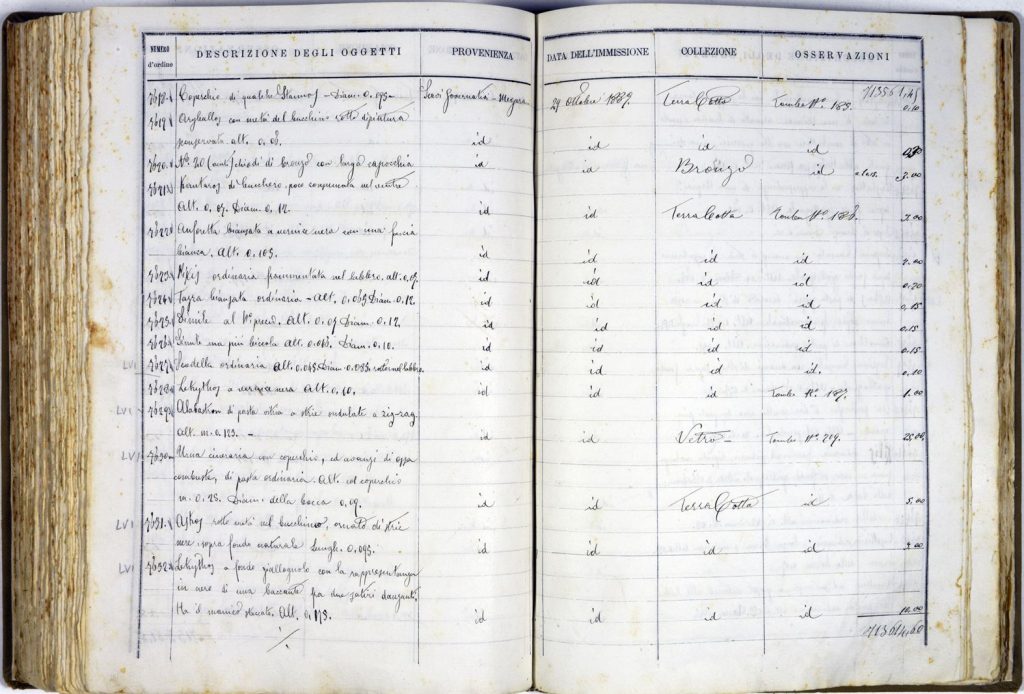 NUMERO d'ordine DESCRIZIONE DEGLI OGGETTI PROVENIENZA DATA DELL'IMMISSIONE COLLEZIONE OSSERVAZIONI
7618 Coperchio di qualche Stamnos - Diam. 0.095 - Scavi Governativi - Megara 29 Ottobre 1889. Terra Cotta Tomba N.º 185. 0.10
7619 Aryballos con metà del bocchino rotto dipintura
conservata alt. 0.06. id id id id
7620 N.º 20 (venti) chiodi di bronzo con larga capocchia id id Bronzo id 2.00
7621 Kantaros di bucchero, poco consumata nel ventre
Alt. 0.07. Diam. 0.12. id id Terra Cotta Tomba N.º 186. 2.00
7622 Anforetta biansata a vernice nera con una fascia
bianca. Alt. 0.105. id id id id 2.00
7623 Pixis ordinaria frammentata nel labbro. alt. 0.07. id id id id 0.20
7624 Tazza biansata ordinaria - Alt. 0.065 Diam. 0.12. id id id id 0.15
7625 Simile al N.º preced. Alt. 0.07 Diam. 0.12 id id id id 0.15
7626 Simile ma più piccola Alt. 0.06. Diam. 0.10. id id id id 0.15
LVI 7627 Scodella ordinaria Alt. 0.045 Diam. 0.085. rotto nel labbro. id id id id. 0.10
7628 Lekythos a vernice nera Alt. 0.10. id id id Tomba N.º 187. 1.00
LVI 7629 Alabastron di pasta vitrea a strie ondulate a zig-zag
Alt. m. 0.123. - id id Vetro - Tomba N.º 219. 25.00
LVI 7630 Urna cineraria con coperchio, ed avanzi di ossa
combuste, di pasta ordinaria. Alt. col coperchio
m. 0.25. Diam. della bocca 0.19. id id Terra Cotta id 5.00
LVI 7631 Askos rotto metà nel bocchino, ornato di strie
nere sopra fondo naturale Lungh. 0.095. id id id id 2.00
LVI 7632 Lekythos a fondo giallognolo con la rappresentanza
in nero di una baccante fra due satiri danzanti.
Ha il manico staccato. Alt. 0.175. id id id id 10.00